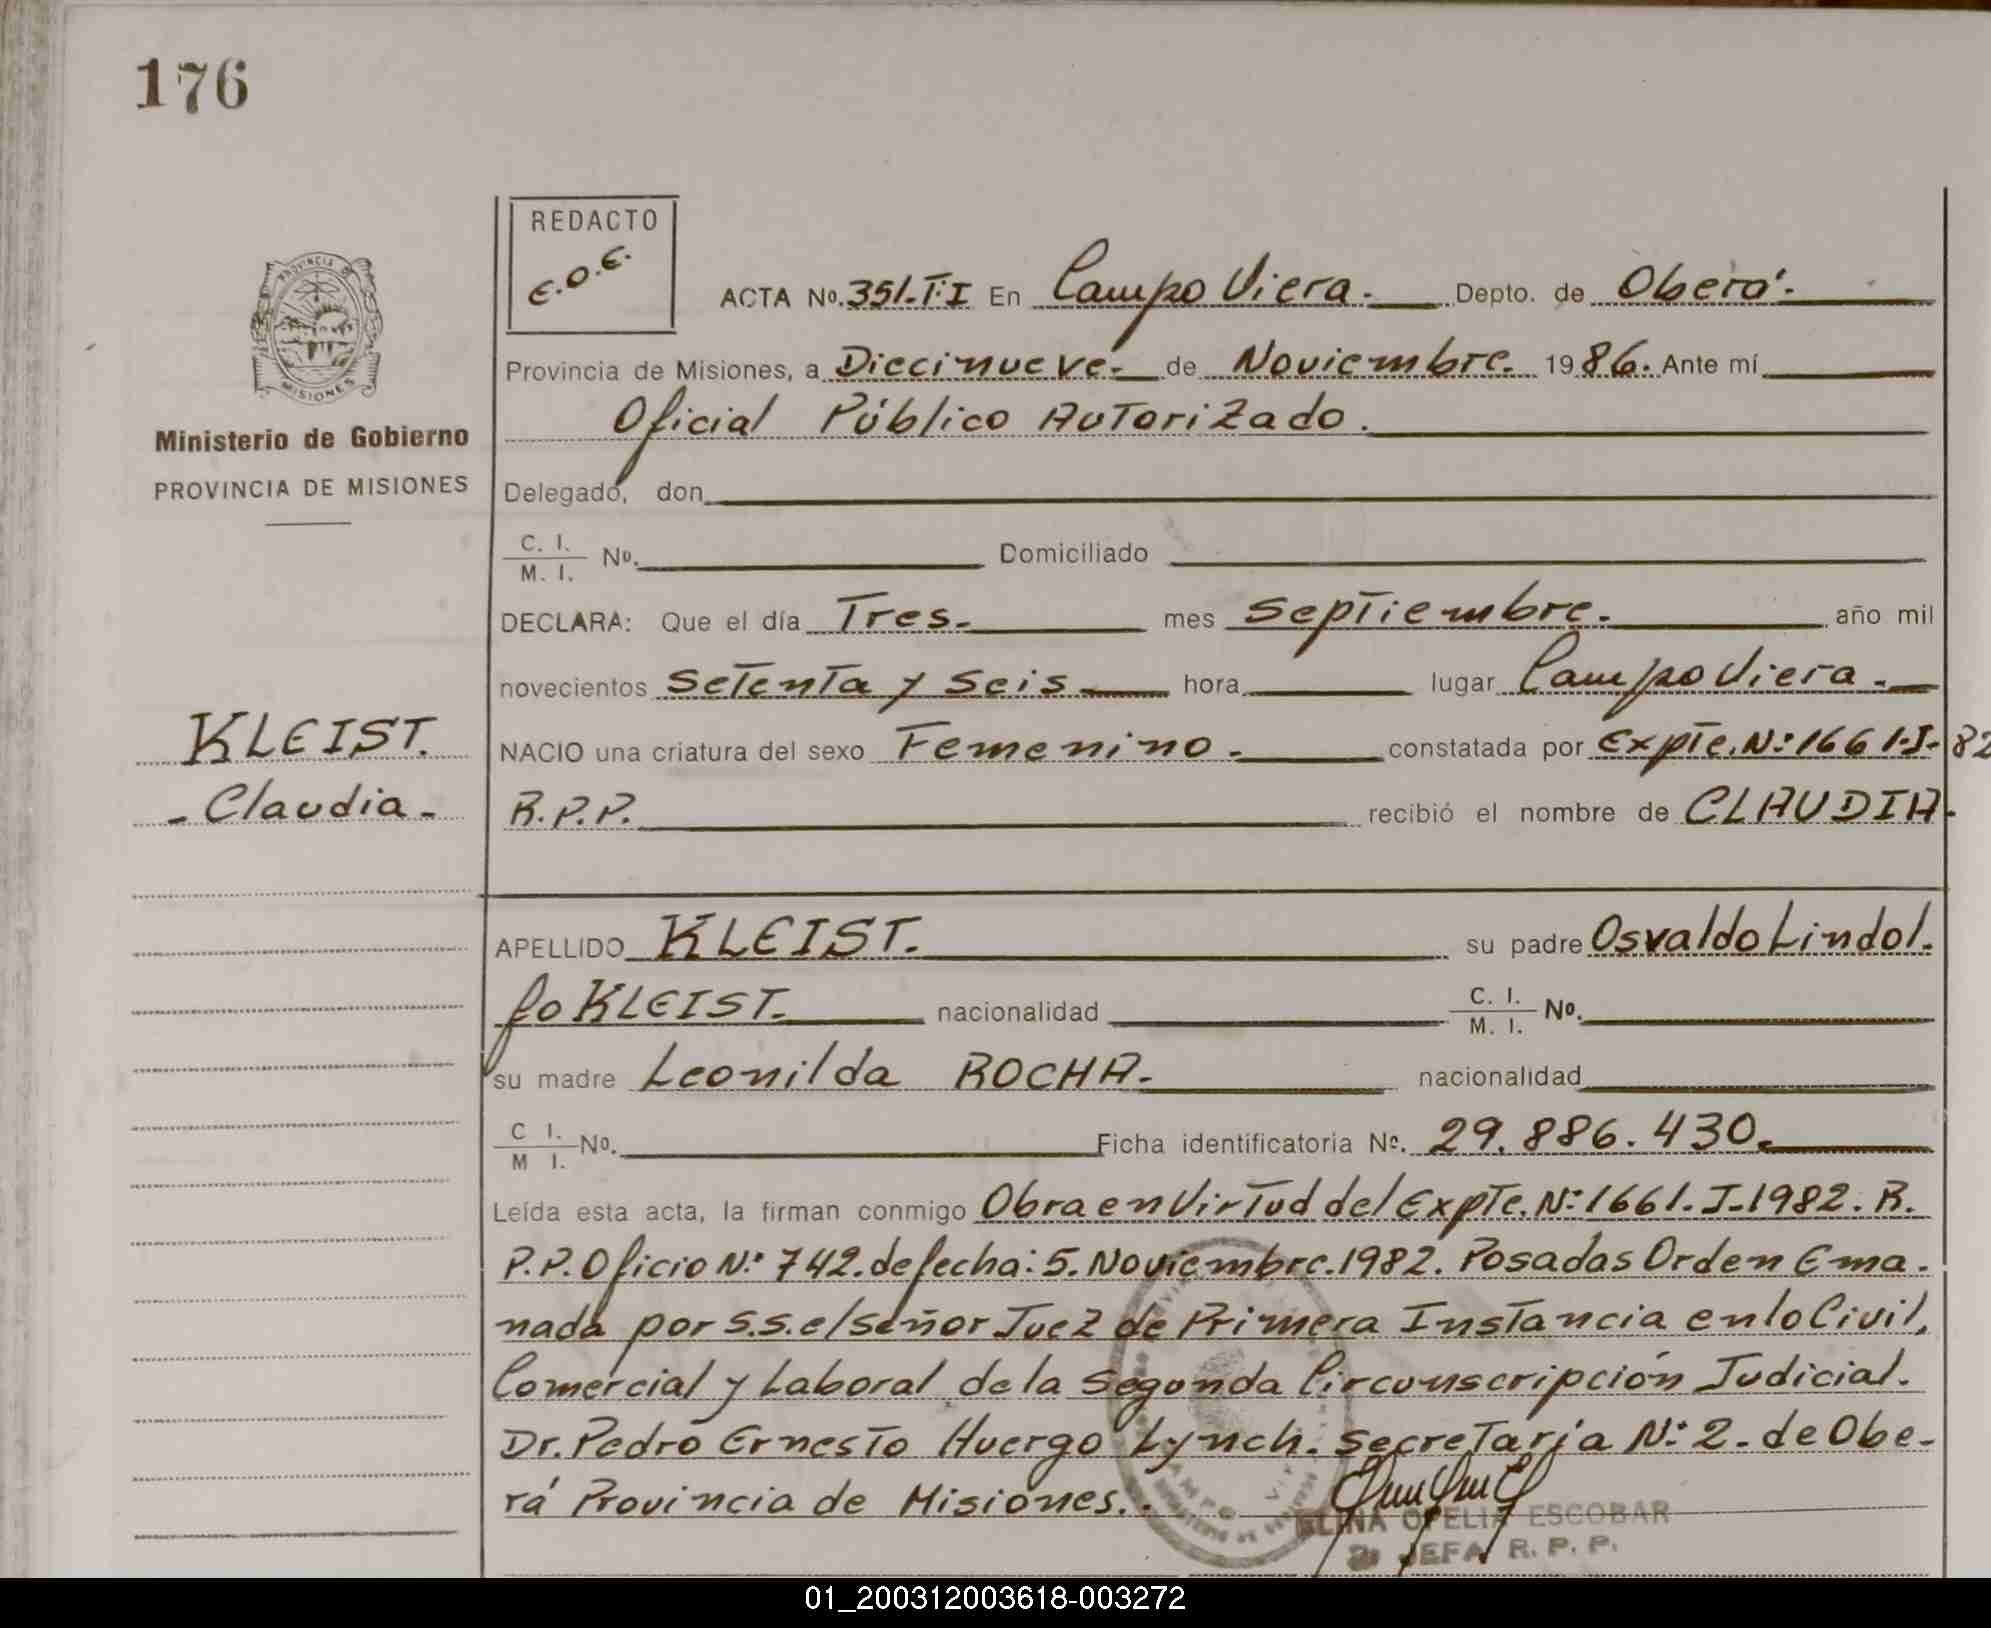 176
REDACTO
E.O.E.
ACTA No. 351.T.I En Campo Viera. Depto. de Oberá.
Provincia de Misiones, a Diecinueve. de Noviembre. 1986. Ante mí
Oficial Público Autorizado.
PROVINCIA DE
MISIONES
Ministerio de Gobierno
PROVINCIA DE MISIONES
Delegado, don
C. I.
M. I. No. Domiciliado
DECLARA: Que el día Tres. mes Septiembre. año mil
novecientos Setenta y Seis hora lugar Campo Viera.
KLEIST.
NACIO una criatura del sexo Femenino. constatada por Expte. Nº 1661-I-82
- Claudia -
R.P.P. recibió el nombre de CLAUDIA-
APELLIDO KLEIST. su padre Osvaldo Lindol.
fo KLEIST. nacionalidad C. I. M. I. No.
su madre Leonilda ROCHA. nacionalidad
C I. M I. No. Ficha identificatoria No. 29.886.430.
Leída esta acta, la firman conmigo Obra en Virtud del Expte. Nº 1661-I-1982. R.
P.P. Oficio Nº 742. de fecha: 5. Noviembre. 1982. Posadas Orden Ema.
nada por S.S. el Señor Juez de Primera Instancia en lo Civil,
Comercial y Laboral de la Segunda Circunscripción Judicial.
Dr. Pedro Ernesto Huergo Lynch. Secretaría Nº 2. de Obe-
rá Provincia de Misiones.
ELINA OFELIA ESCOBAR
JEFA R. P. P.
01_200312003618-003272